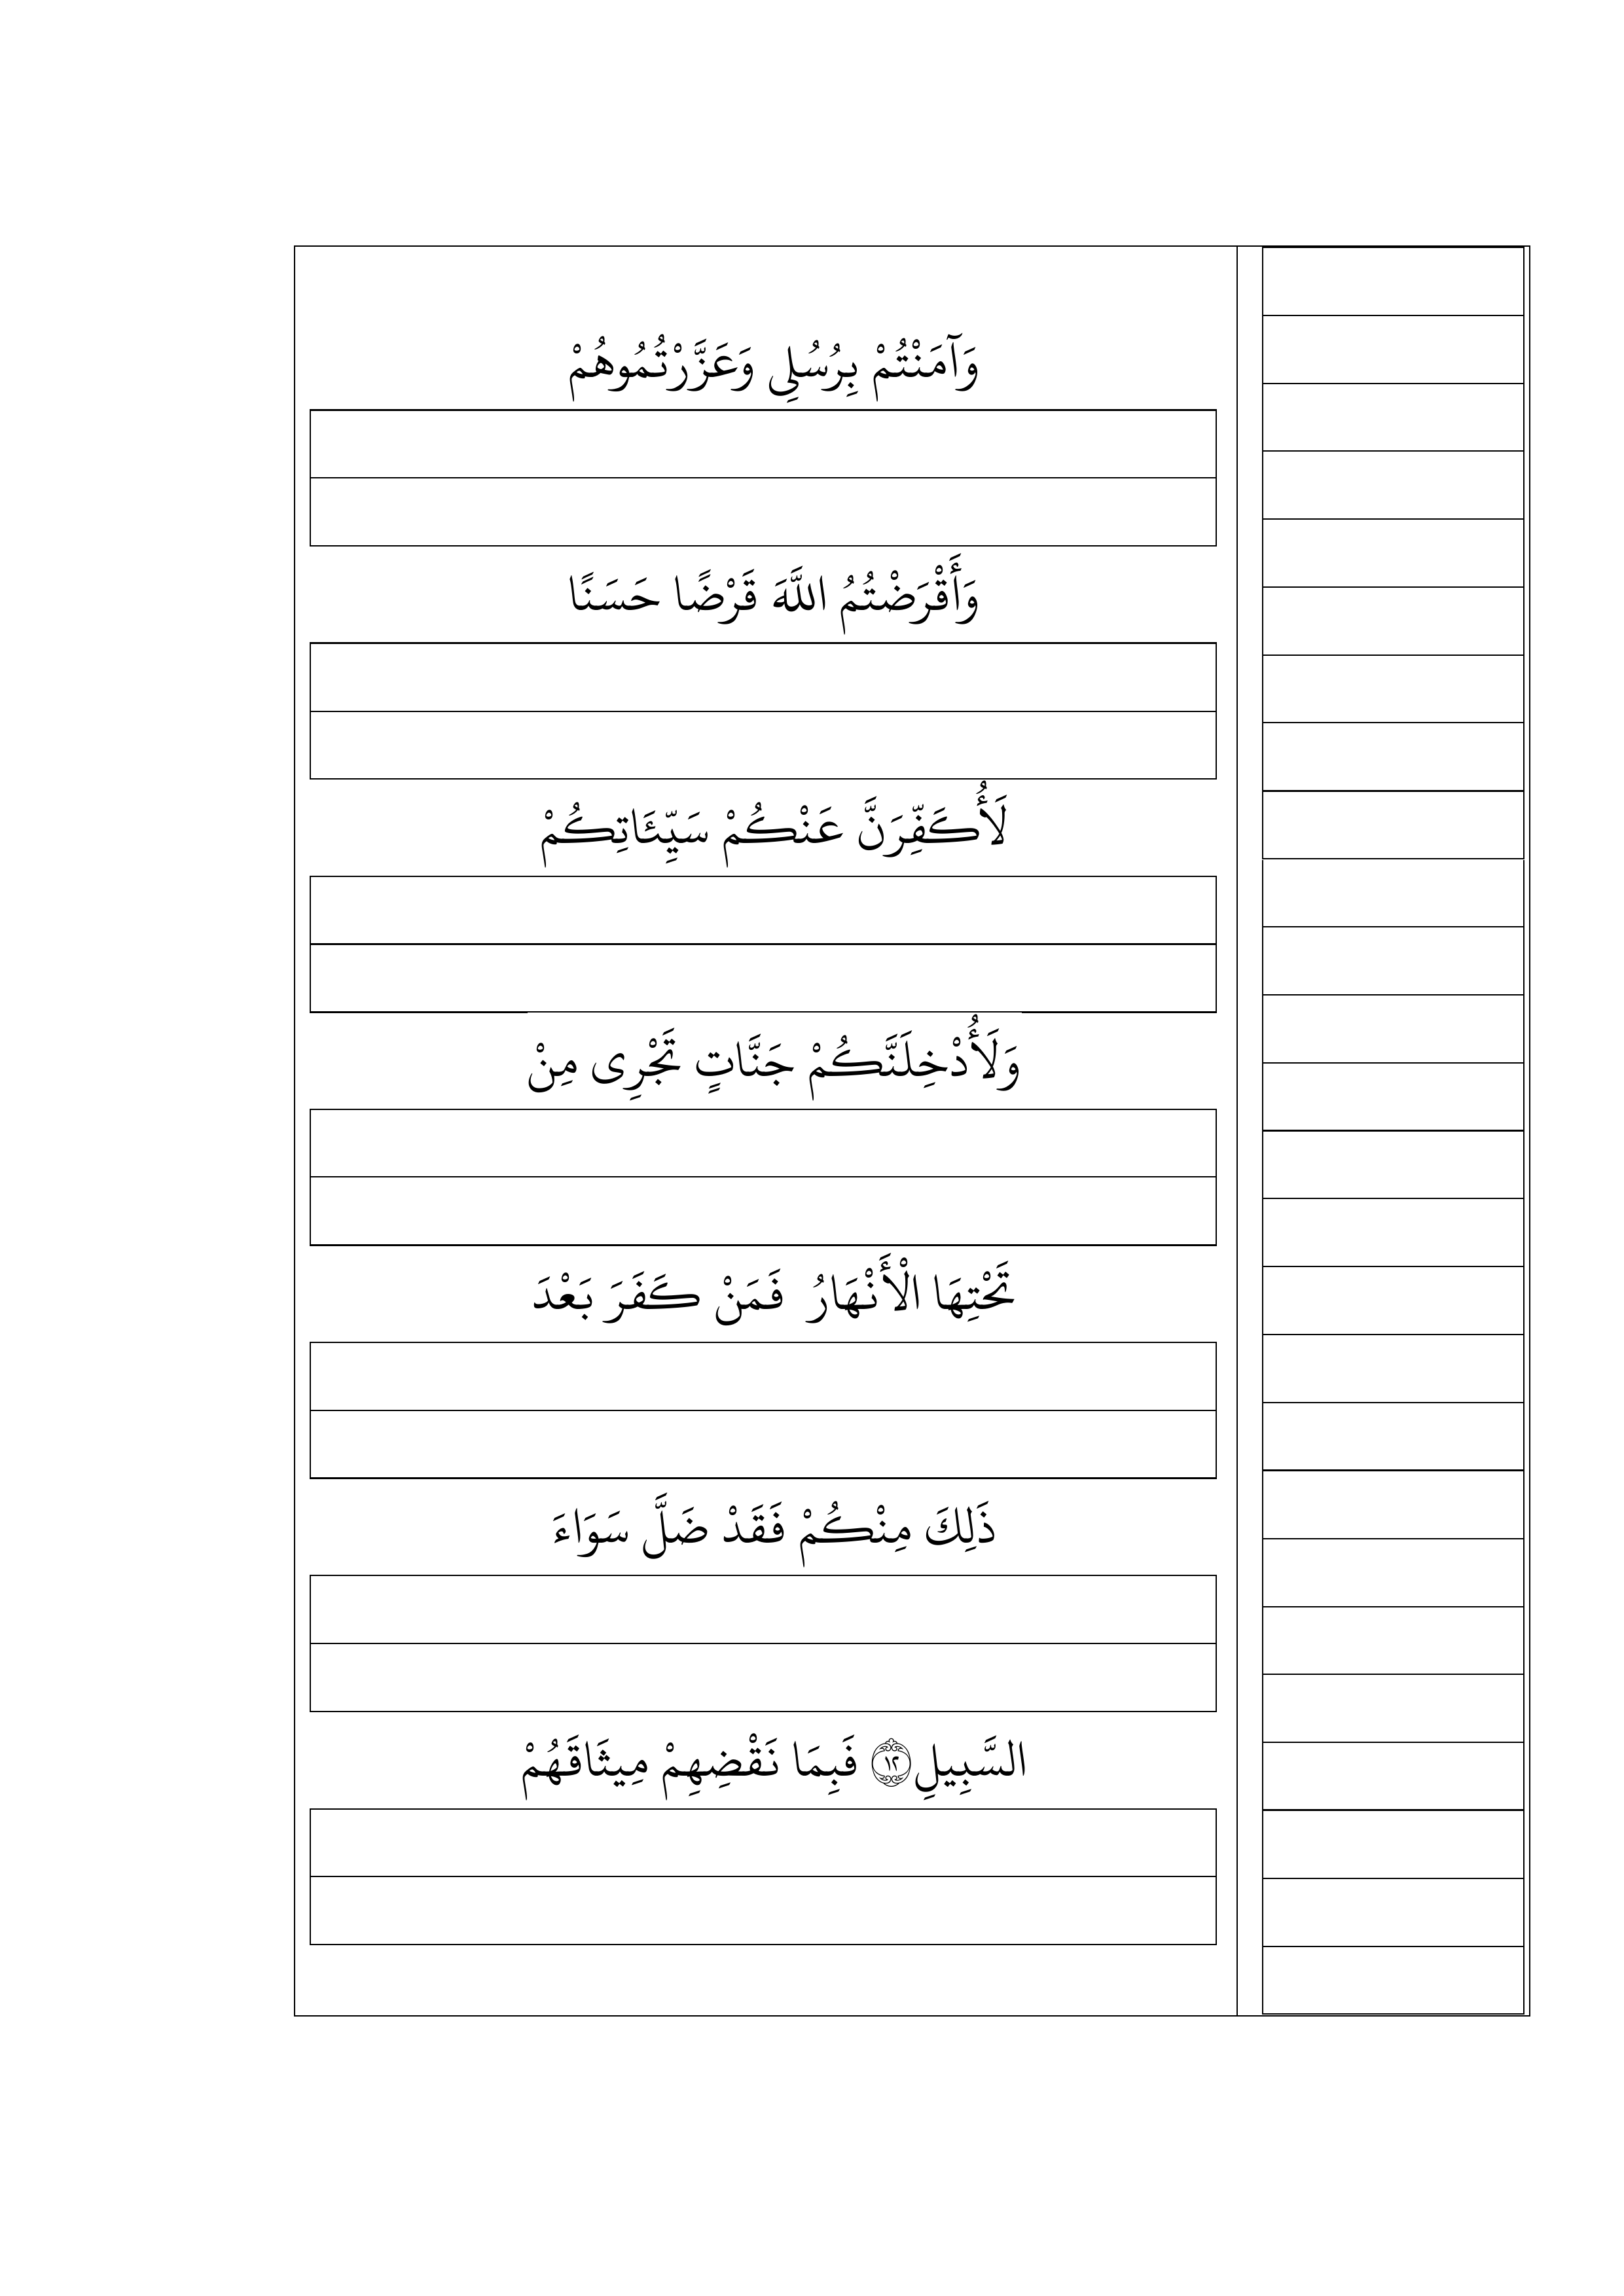 وَآمَنْتُمْ بِرُسُلِي وَعَزَّرْتُمُوهُمْ
وَأَقْرَضْتُمُ اللَّهَ قَرْضًا حَسَنًا
لَأُكَفِّرَنَّ عَنْكُمْ سَيِّئَاتِكُمْ
وَلَأُدْخِلَنَّكُمْ جَنَّاتٍ تَجْرِى مِنْ
تَحْتِهَا الْأَنْهَارُ فَمَنْ كَفَرَ بَعْدَ
ذَلِكَ مِنْكُمْ فَقَدْ ضَلَّ سَوَاءَ
السَّبِيلِ ۝١٢ فَبِمَا نَقْضِهِمْ مِيثَاقَهُمْ